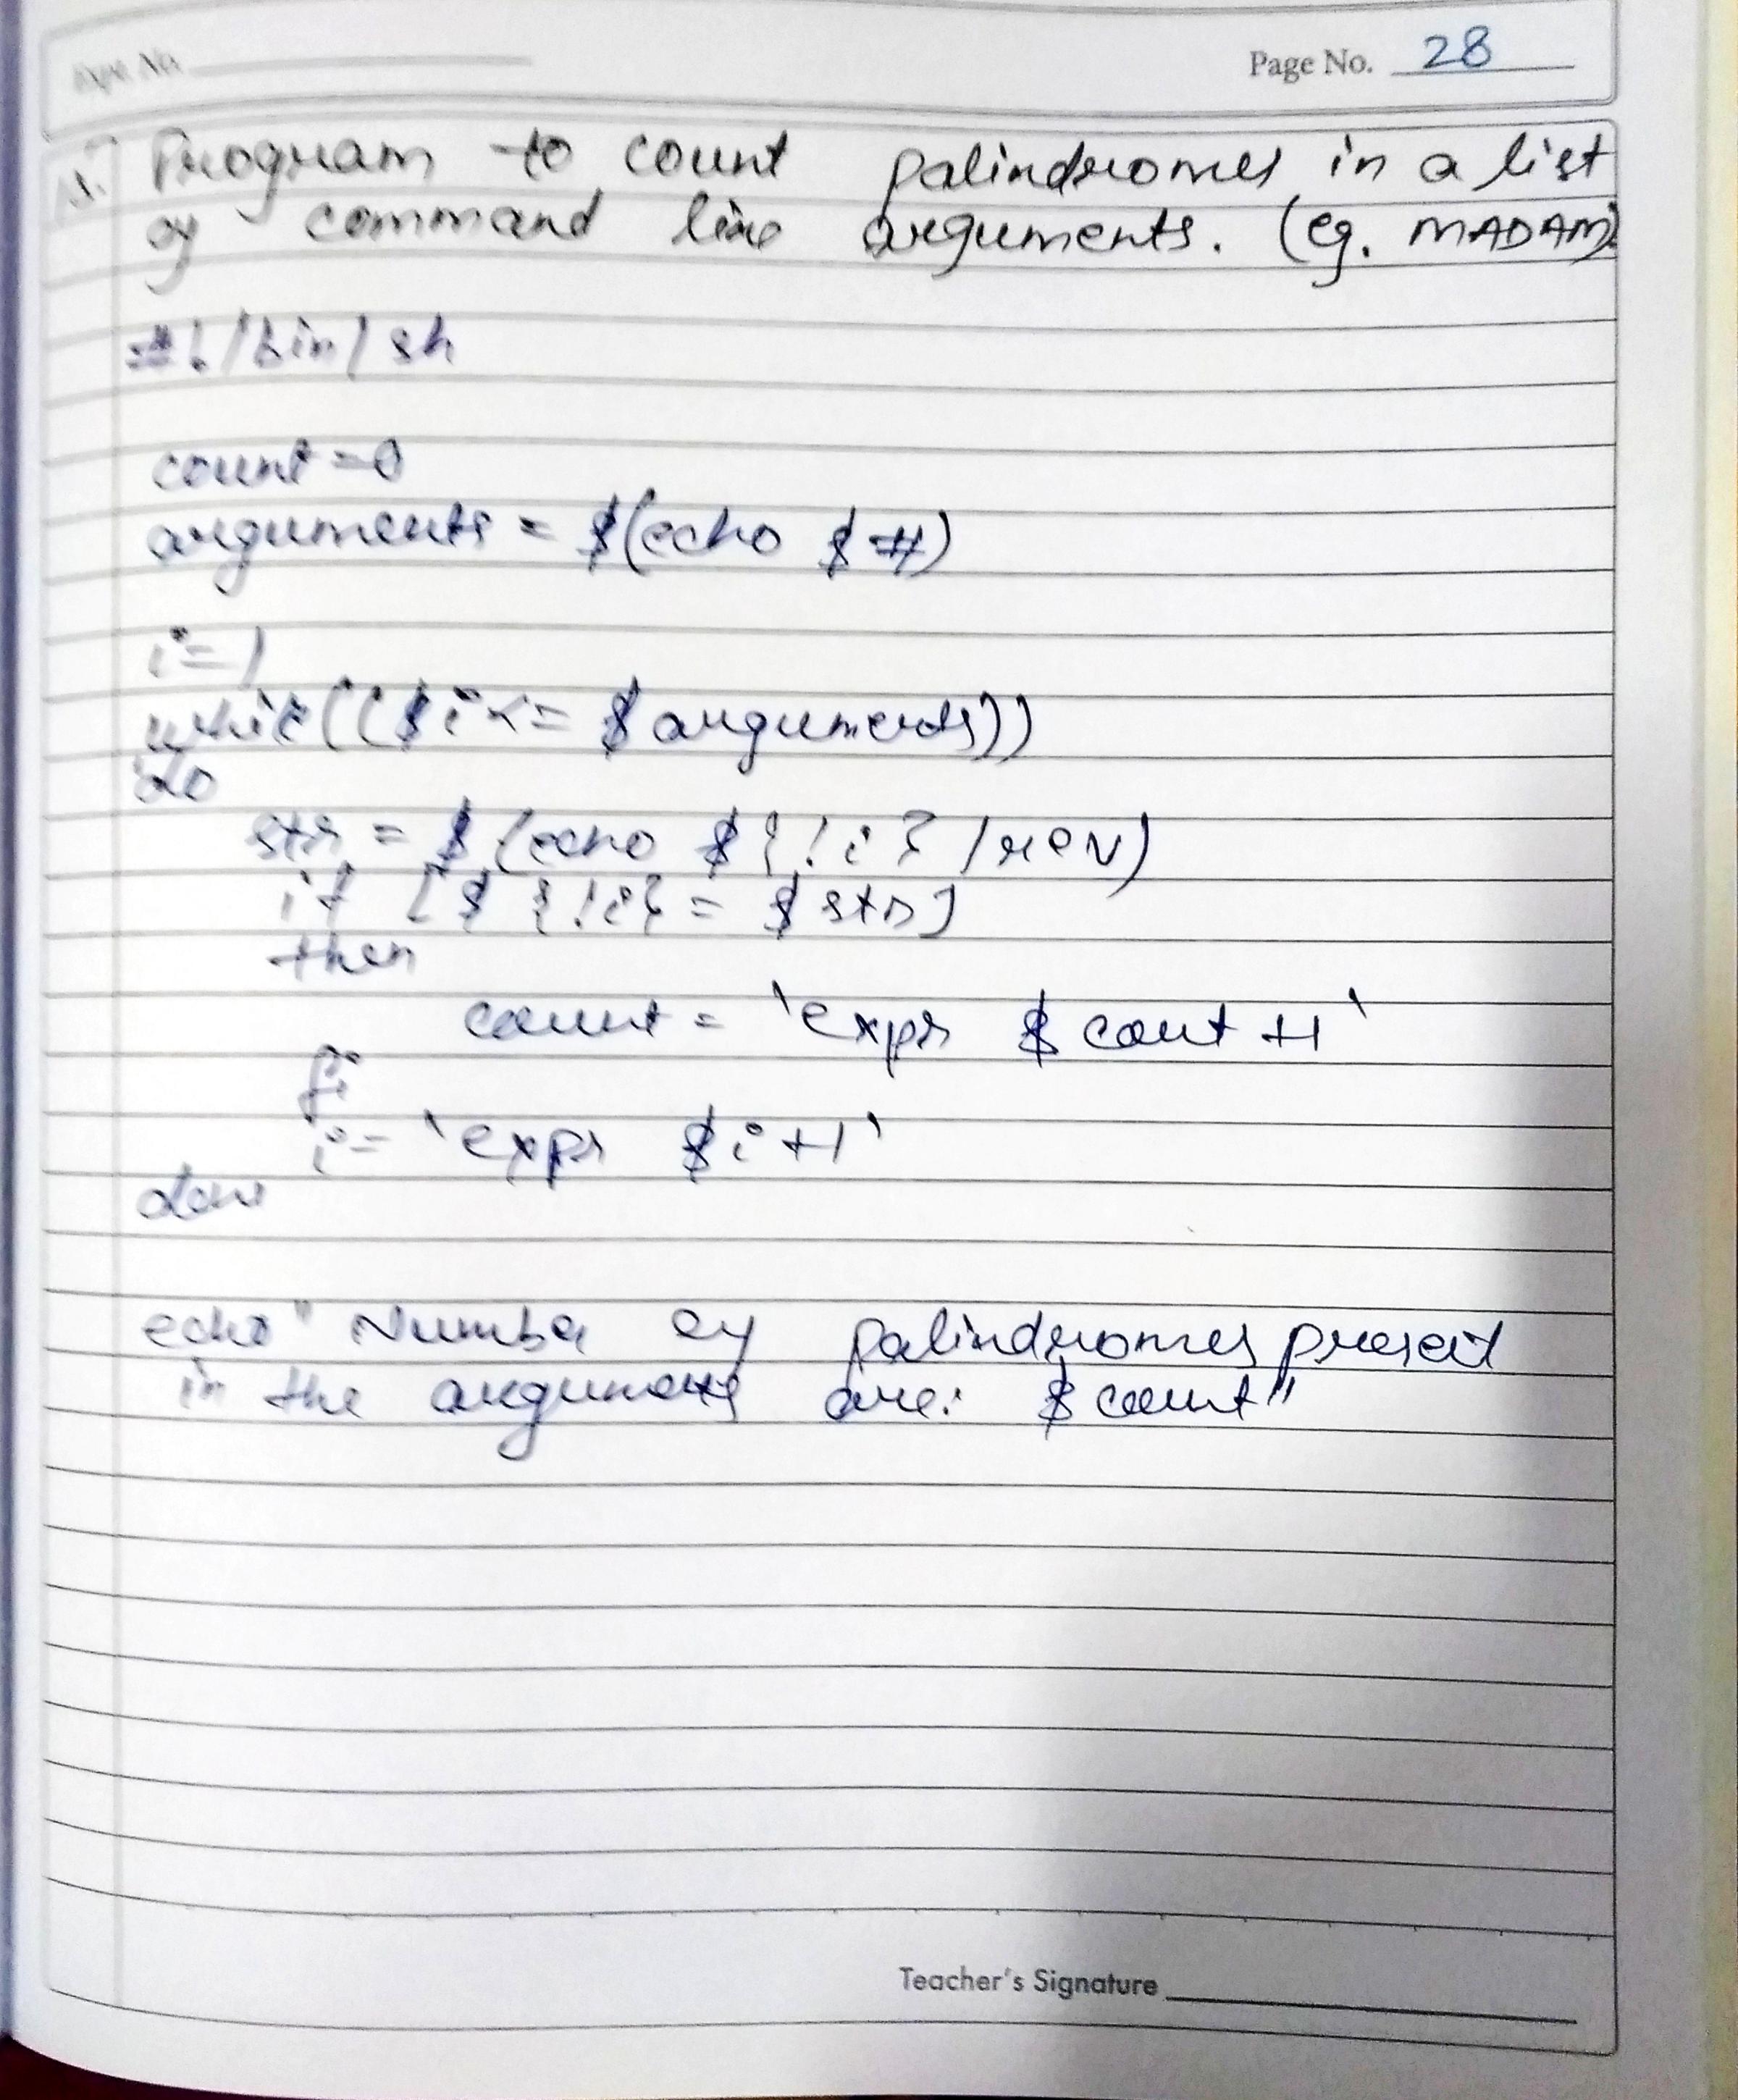 Expt. No.
Page No. 28
Program to count palindromes in a list
of command line arguments. (eg. MADAM)
#!/bin/sh
count=0
arguments = $(echo $#)
i=1
while(($i<= $arguments))
do
str = $(echo ${!i} | rev)
if [$ {!i} = $str]
then
count = `expr $ cout +1`
fi
i= `expr $i+1`
done
echo" Number of palindromes present
in the arguments are: $count"
Teacher's Signature